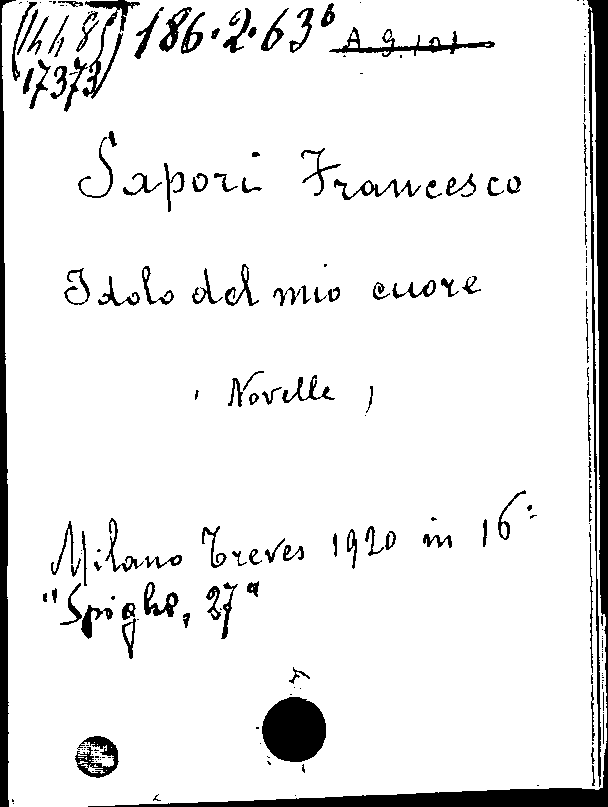 (14485) 186.2.63⁶ A 9.101
17373
Sapori Francesco
Idolo del mio cuore
(Novelle)
Milano Treves 1920 in 16°
"Spighe, 27"